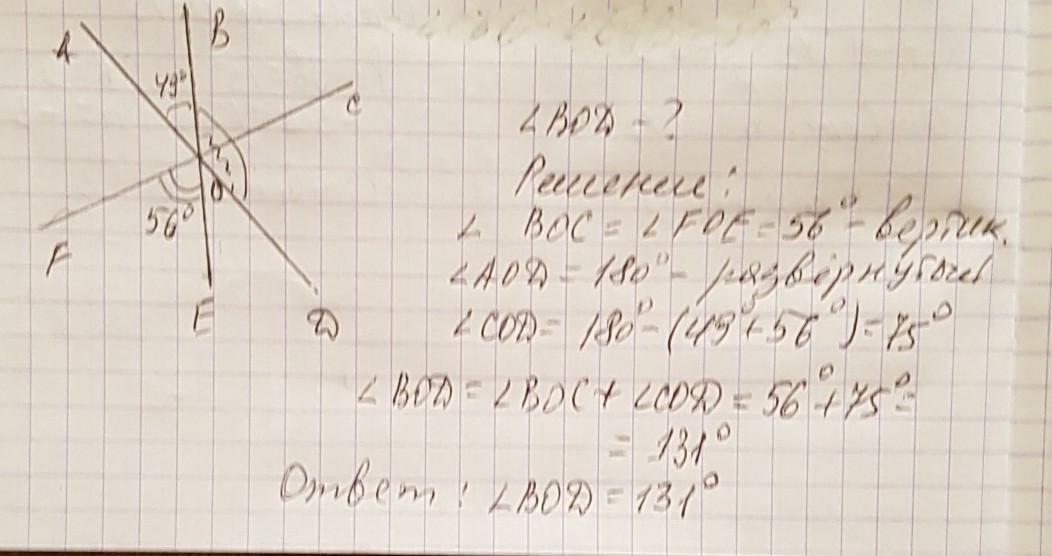 A
B
49°
C
O
56°
F
E
D
∠BOD - ?
Решение:
∠ BOC = ∠FOE = 56° - вертик.
∠AOD = 180° - развёрнутый
∠COD = 180° - (49° + 56°) = 75°
∠BOD = ∠BOC + ∠COD = 56° + 75° =
= 131°
Ответ: ∠BOD = 131°